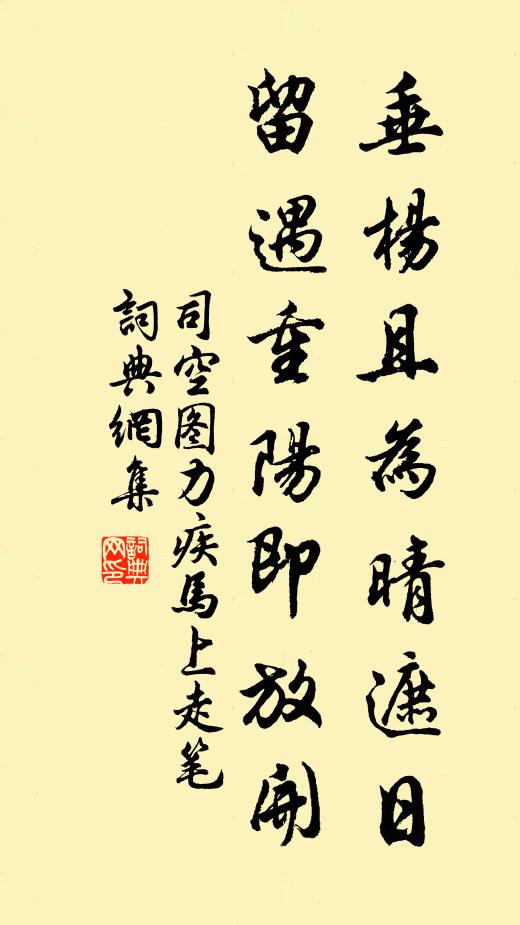 垂楊且為晴遮日
留遇重陽即放開
司空图力疾馬上走笔
詞典網集
詞典網印